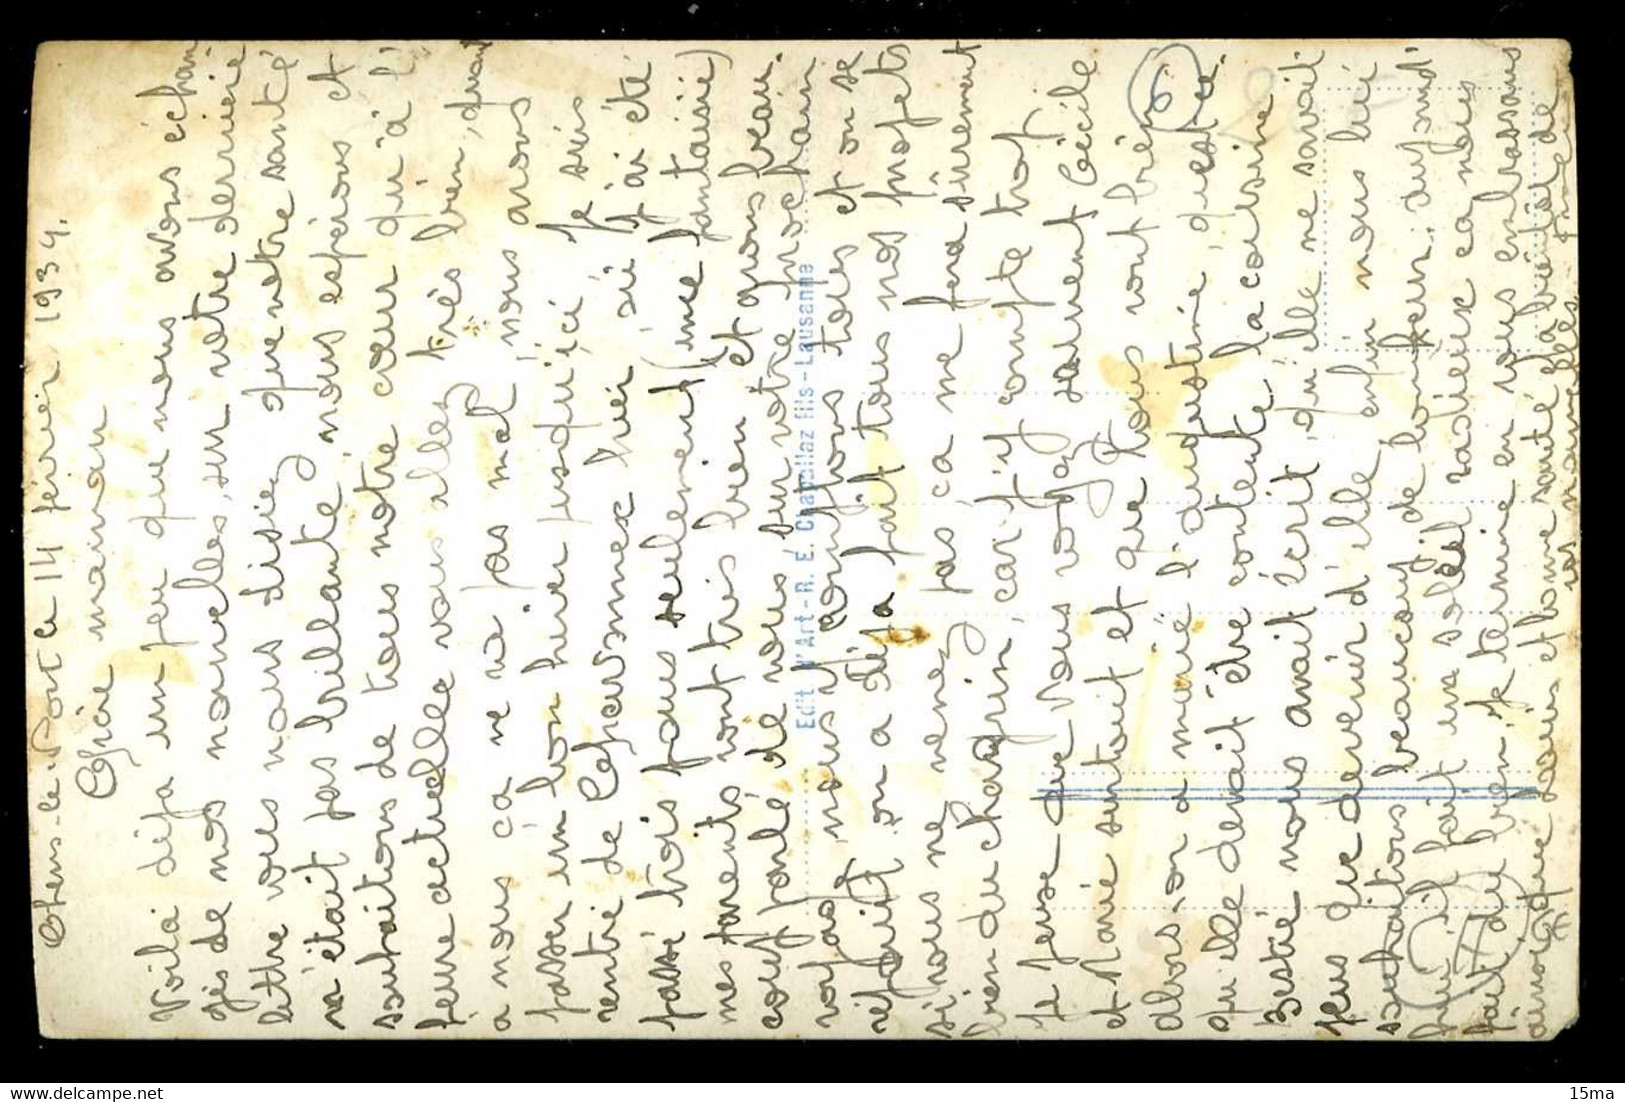 Chens-le-Pont ce 14 février 1934.
Chère maman
Voilà déja un peu que nous avons échan
gés de nos nouvelles, sur votre dernière
lettre vous nous disiez que votre santé
n'était pas brillante, nous espérons et
souhaitons de tous notre cœur qu'à l'
heure actuelle vous allez très bien, quant
a nous ça ne va pas mal, nous avons
passer un bon hiver jusqu'ici je suis
rentré de hier si j'ai été
passé trois jours seulement (une fantaisie)
mes parents vont très bien et avons beau.
coup parlé de vous sur votre prochain
voyage, nous y comptons tous et on se
réjouit, on a déja fait tous nos projets
si vous ne venez pas ça me fera sûrement
bien du chagrin, car j'y compte trop
Je pense que vous voyez souvent Cécile
et Marie surtout et que tous vont bien
alors on a marié l'augustine, qu'est ce
qu'elle devait être contente, la cousine
nous avait écrit, qu'elle ne savait
plus que devenir d'elle enfin nous lui
souhaitons beaucoup de bonheur, aujourd'
hui il fait un soleil radieux ca nous
fait du bien, je termine en vous embrassans
ainsi que Louis et bonne santé
Edit. d'Art - R. E. Chapallaz fils - Lausanne
6
15ma